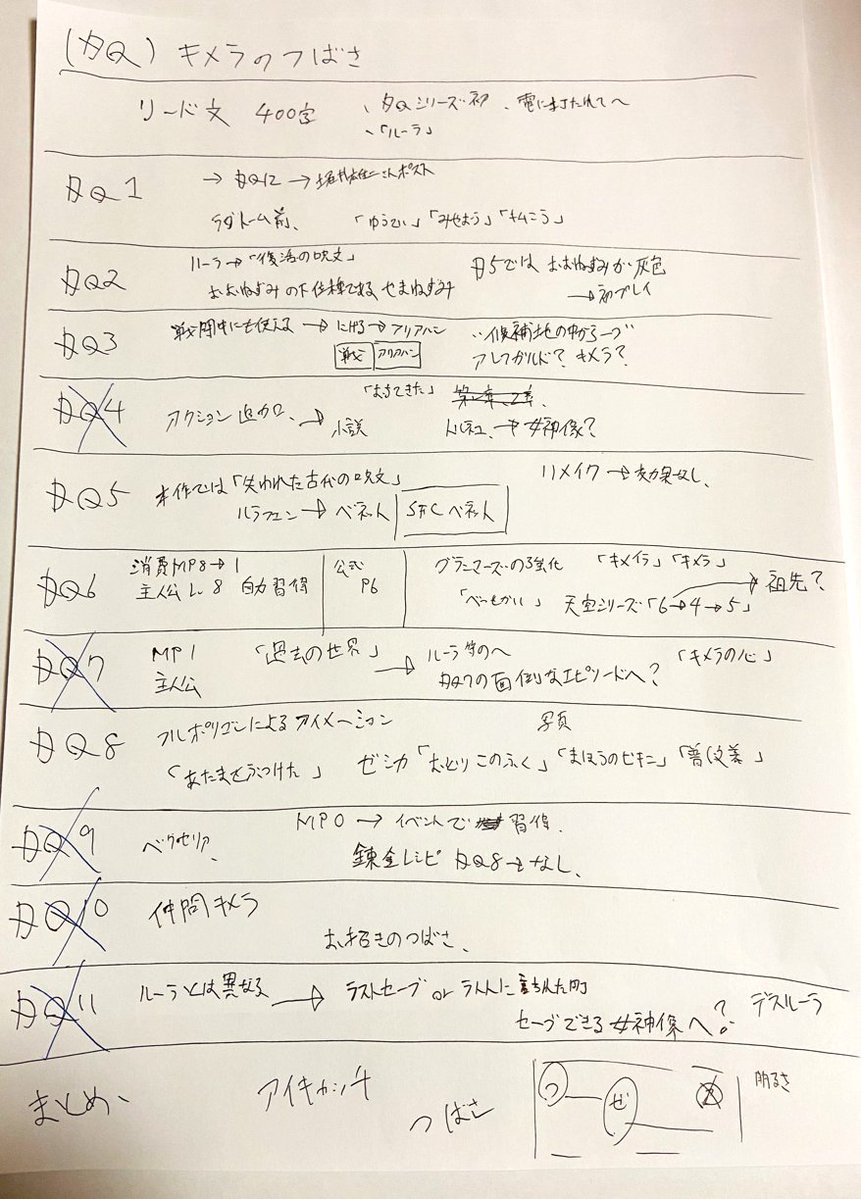 (DQ) キメラのつばさ
リード文 400字 、DQシリーズ初
、「ルーラ」
DQ1 → DQ12 → ポスト
ラダトーム前、 「ゆうてい」「みやおう」「キムこう」
DQ2 ルーラ→「復活の呪文」 D5では おおねずみが灰色
おおねずみの下位種である やまねずみ →初プレイ
DQ3 戦闘中にも使える → にげる → アリアハン 候補地の中から一つ
戦う アリアハン アレフガルド? キメラ?
DQ4 「おちてきた」
アクション追加、→小説 トルネコ、→女神像?
DQ5 本作では「失われた古代の呪文」 リメイク→効果なし、
ルラフェン→ベネット SFCベネット
DQ6 消費MP8→1 公式 グランマーズの強化 「キメイラ」「キメラ」
主人公 L 8 自力習得 P6 天空シリーズ「6→4→5」 → 祖先?
DQ7 MP1 「過去の世界」 → ルーラ 「キメラの心」
主人公 DQ7の面倒なエピソードへ?
DQ8 フルポリゴンによるアイメーション 写真
「あたまをぶつけた」 ゼシカ「おどりこのふく」「まほうのビキニ」「普段着」
DQ9 ベクセリア、 MP0 → イベントで 習得、
錬金レシピ DQ8→なし、
DQ10 仲間キメラ
お招きのつばさ、
DQ11 ルーラとは異なる → ラストセーブ or デスルーラ
セーブできる女神像へ?
まとめ、 アイキャッチ つばさ つ ぜ 明るさ